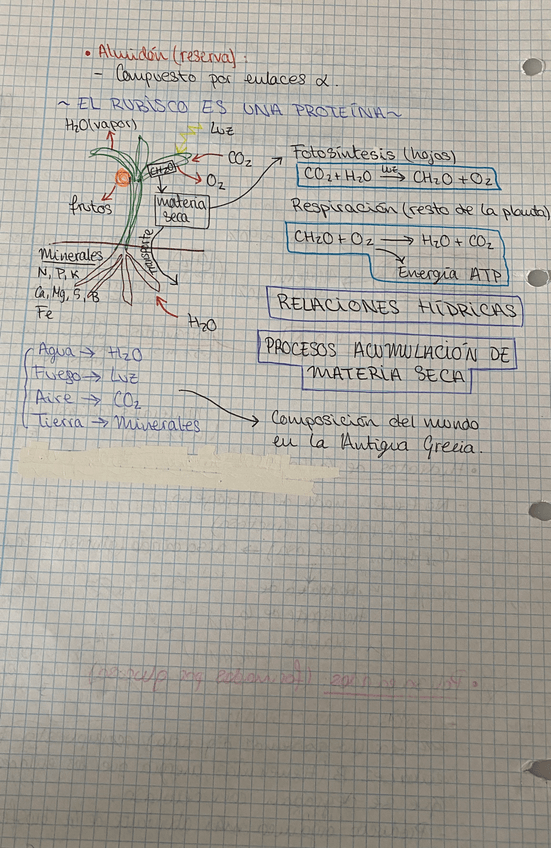 • Almidón (reserva):
– Compuesto por enlaces α.
~ EL RUBISCO ES UNA PROTEÍNA ~
H₂O (vapor)
Luz
CO₂
CH₂O
O₂
frutos
materia
seca
transporte
Minerales
N, P, K
Ca, Mg, S, B
Fe
H₂O
Fotosíntesis (hojas)
CO₂ + H₂O luz → CH₂O + O₂
Respiración (resto de la planta)
CH₂O + O₂ → H₂O + CO₂
Energía ATP
RELACIONES HÍDRICAS
PROCESOS ACUMULACIÓN DE
MATERIA SECA
Agua → H₂O
Fuego → Luz
Aire → CO₂
Tierra → Minerales
Composición del mundo
en la Antigua Grecia.